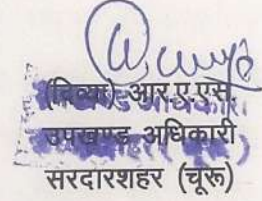 (दिव्या) आर.ए.एस.
उपखण्ड अधिकारी
सरदारशहर (चूरू)